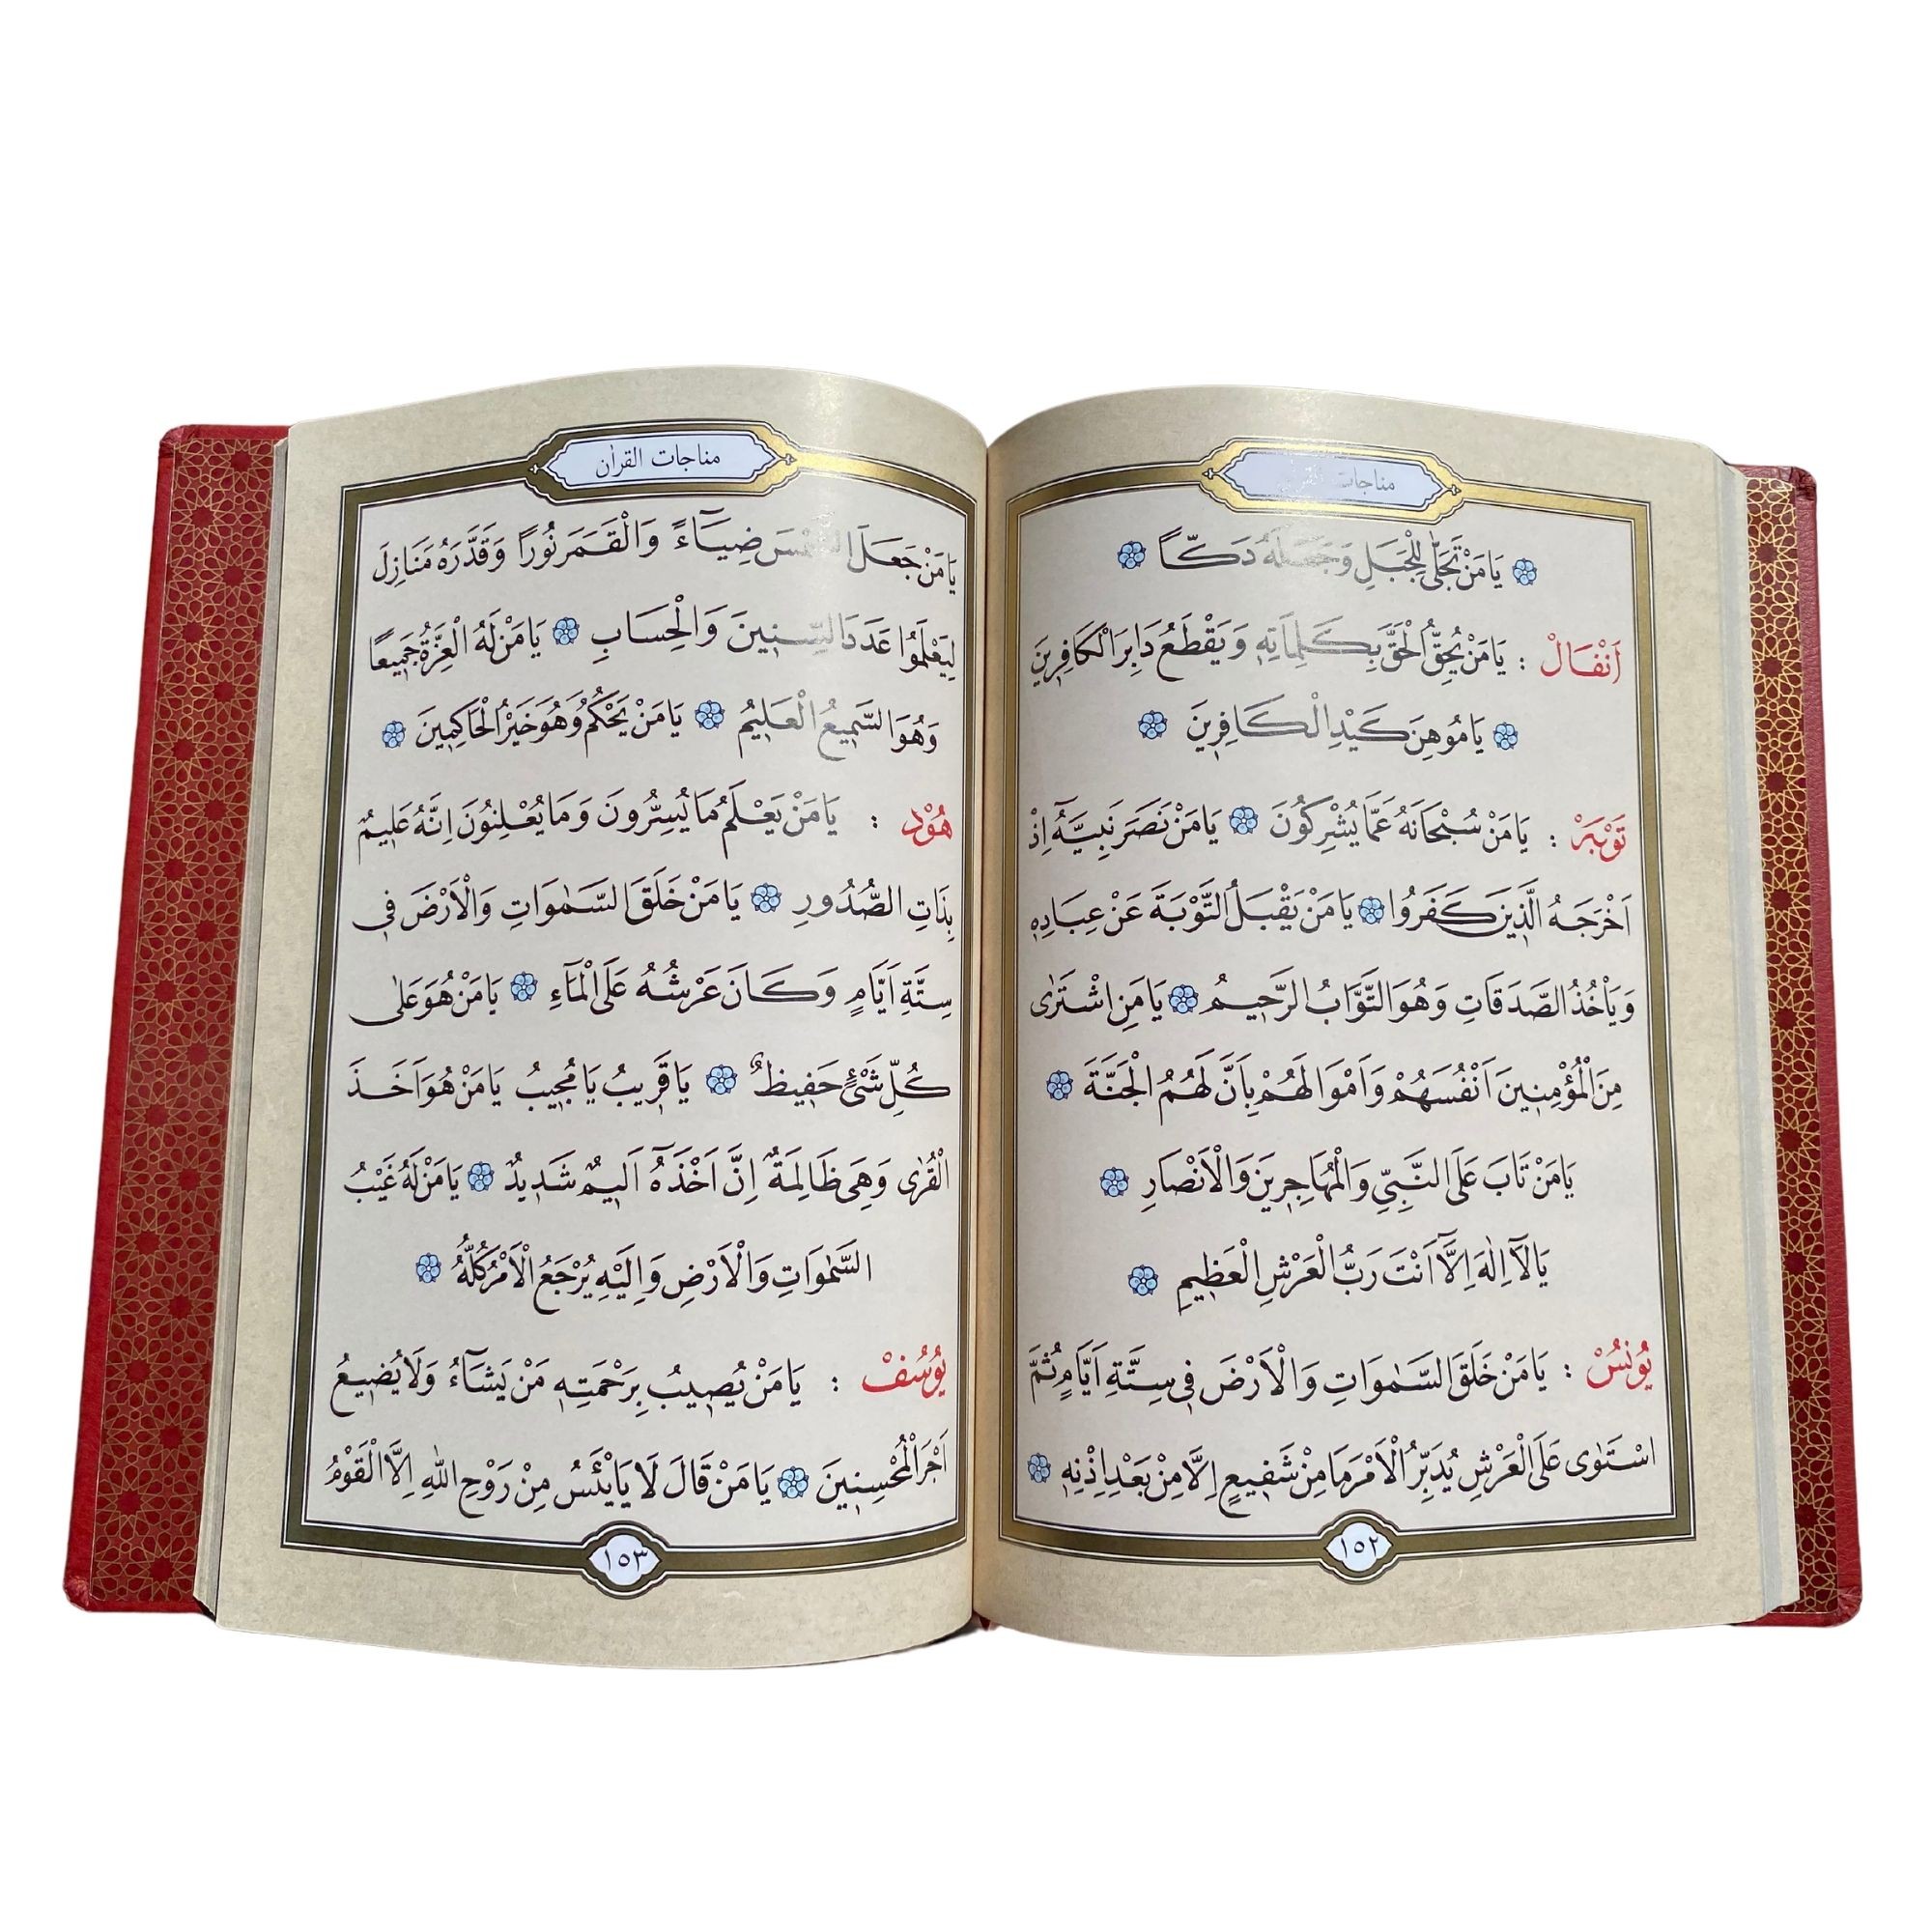 مناجات
يَا مَنْ تَجَلّٰى لِلْجَبَلِ وَجَعَلَهُ دَكًّا
اَنْفَالْ : يَا مَنْ يُحِقُّ الْحَقَّ بِكَلِمَاتِهٖ وَيَقْطَعُ دَابِرَ الْكَافِرٖينَ
يَا مُوهِنَ كَيْدِ الْكَافِرٖينَ
تَوْبَهْ : يَا مَنْ سُبْحَانَهُ عَمَّا يُشْرِكُونَ يَا مَنْ نَصَرَ نَبِيَّهُٓ اِذْ
اَخْرَجَهُ الَّذٖينَ كَفَرُوا يَا مَنْ يَقْبَلُ التَّوْبَةَ عَنْ عِبَادِهٖ
وَيَاْخُذُ الصَّدَقَاتِ وَهُوَ التَّوَّابُ الرَّحٖيمُ يَا مَنِ اشْتَرٰى
مِنَ الْمُؤْمِنٖينَ اَنْفُسَهُمْ وَاَمْوَالَهُمْ بِاَنَّ لَهُمُ الْجَنَّةَ
يَا مَنْ تَابَ عَلَى النَّبِيِّ وَالْمُهَاجِرٖينَ وَالْاَنْصَارِ
يَا لَٓا اِلٰهَ اِلَّٓا اَنْتَ رَبُّ الْعَرْشِ الْعَظٖيمِ
يُونُسْ : يَا مَنْ خَلَقَ السَّمٰوَاتِ وَالْاَرْضَ فٖى سِتَّةِ اَيَّامٍ ثُمَّ
اسْتَوٰى عَلَى الْعَرْشِ يُدَبِّرُ الْاَمْرَ مَا مِنْ شَفٖيعٍ اِلَّا مِنْ بَعْدِ اِذْنِهٖ
١٥٢
مناجات القرأن
يَا مَنْ جَعَلَ الشَّمْسَ ضِيَٓاءً وَالْقَمَرَ نُورًا وَقَدَّرَهُ مَنَازِلَ
لِيَعْلَمُوا عَدَدَ السِّنٖينَ وَالْحِسَابِ يَا مَنْ لَهُ الْعِزَّةُ جَمٖيعًا
وَهُوَ السَّمٖيعُ الْعَلٖيمُ يَا مَنْ يَحْكُمُ وَهُوَ خَيْرُ الْحَاكِمٖينَ
هُوْد : يَا مَنْ يَعْلَمُ مَا يُسِرُّونَ وَمَا يُعْلِنُونَ اِنَّهُ عَلٖيمٌ
بِذَاتِ الصُّدُورِ يَا مَنْ خَلَقَ السَّمٰوَاتِ وَالْاَرْضَ فٖى
سِتَّةِ اَيَّامٍ وَكَانَ عَرْشُهُ عَلَى الْمَٓاءِ يَا مَنْ هُوَ عَلٰى
كُلِّ شَىْءٍ حَفٖيظٌ يَا قَرٖيبُ يَا مُجٖيبُ يَا مَنْ هُوَ اَخَذَ
الْقُرٰى وَهِىَ ظَالِمَةٌ اِنَّ اَخْذَهُٓ اَلٖيمٌ شَدٖيدٌ يَا مَنْ لَهُ غَيْبُ
السَّمٰوَاتِ وَالْاَرْضِ وَاِلَيْهِ يُرْجَعُ الْاَمْرُ كُلُّهُ
يُوسُفْ : يَا مَنْ يُصٖيبُ بِرَحْمَتِهٖ مَنْ يَشَٓاءُ وَلَا يُضٖيعُ
اَجْرَ الْمُحْسِنٖينَ يَا مَنْ قَالَ لَا يَايْئَسُ مِنْ رَوْحِ اللّٰهِ اِلَّا الْقَوْمُ
١٥٣